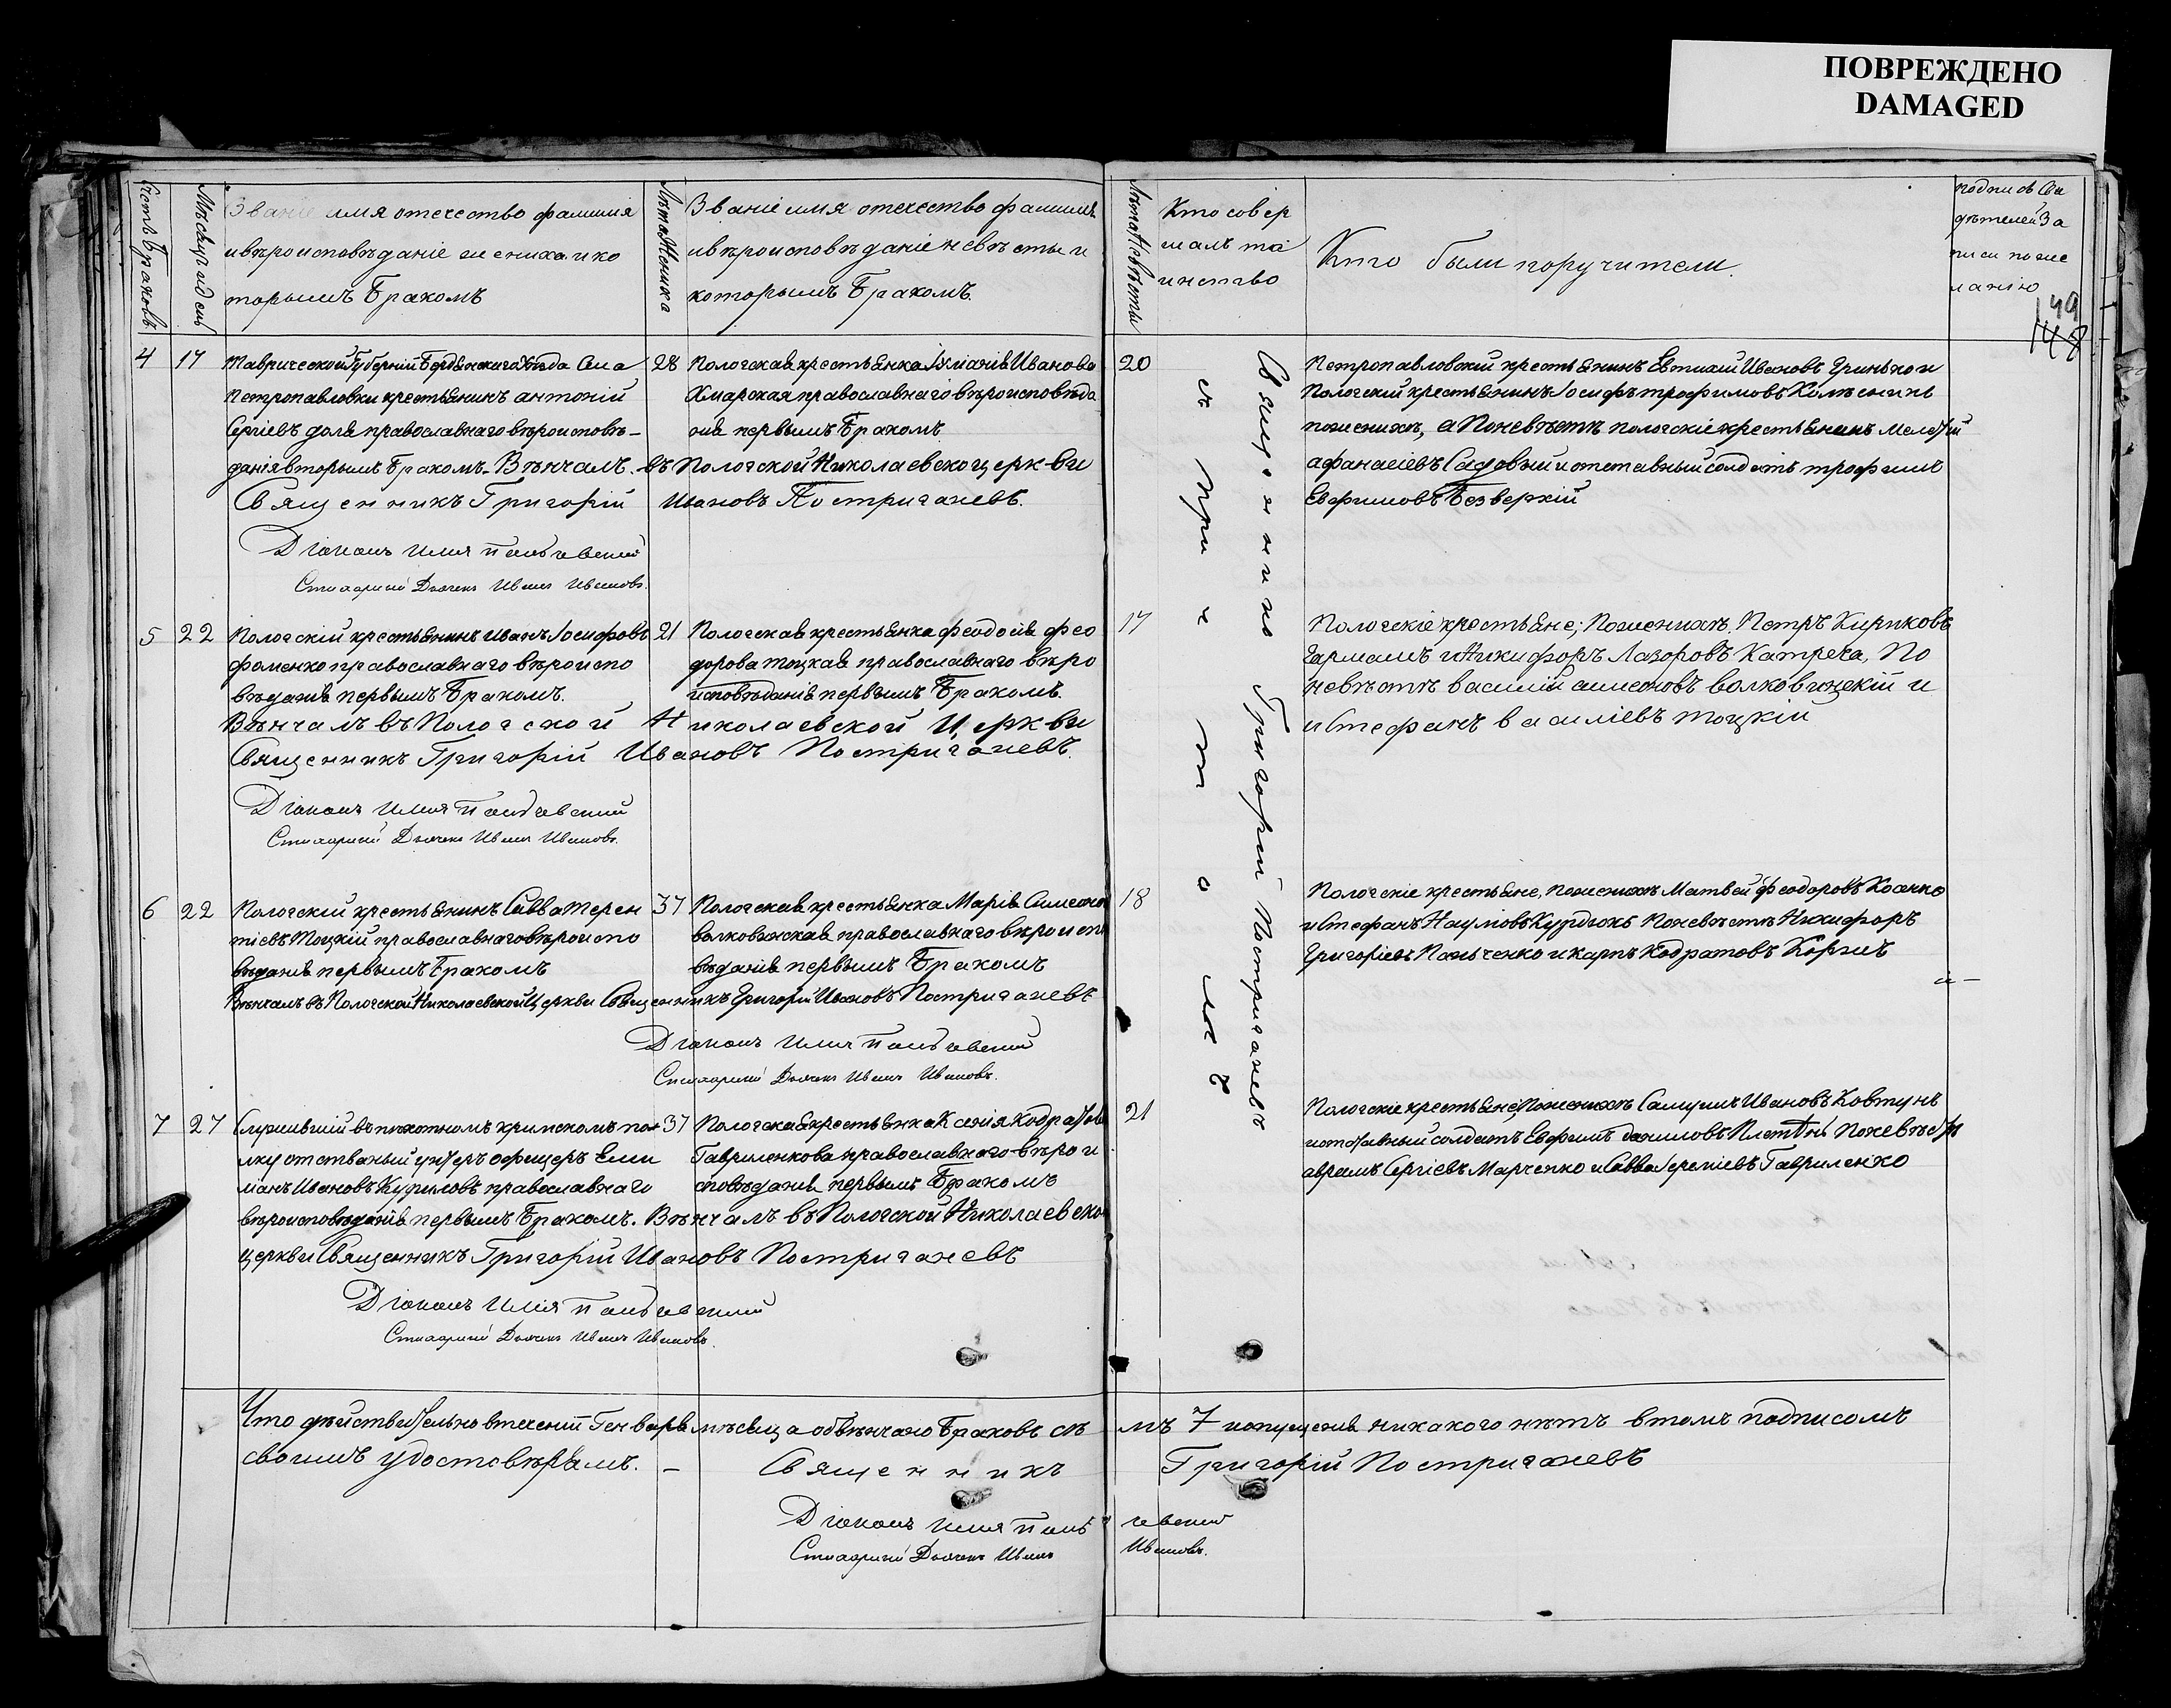 ПОВРЕЖДЕНО
DAMAGED
Счетъ Браковъ
Званіе имя отечество фамилия
ивѣроисповѣданіе жениха ико
торымъ Бракомъ
Лѣта Жениха
Званіе имя отечество фамилия
ивѣроисповѣданіе невѣсты и
которымъ Бракомъ.
Лѣта Невѣсты
Кто совер
шалъ та
инство
Кто были поручители.
подпись Сви
дѣтелей За
писи по же
ланію
149
148
4 17
Таврической Губерніи Бердянскаго Уѣзда Села
Петропавловки крестьянинъ антоній
Сергіевъ доля православнаго вѣроисповѣ-
данія вторымъ Бракомъ. Вѣнчалъ въ Пологской Николаевской церкви
Священникъ Григорій Ивановъ Постригачевъ.
Діаконъ Илия
Стихарный Дьячекъ Иванъ Ивановъ.
28
Пологская крестьянка Иванова
Хмарская православнаго вѣроисповѣда
нія первымъ Бракомъ
20
Петропавловскій крестьянинъ Евтихій Ивановъ Гринько и
Пологскій крестьянинъ Іосифъ трофимовъ
пожениху, а Поневѣстѣ пологскіе крестьянинъ Мелетій
афанасіевъ Садовый и отставный солдатъ трофимъ
Евфимовъ Безверхій
Священникъ Григорій Постригачевъ
съ причтомъ
5 22
Пологскій крестьянинъ иванъ Іосифовъ
фоменко православнаго вѣроиспо
вѣданія первымъ Бракомъ.
Вѣнчалъ въ Пологской Николаевской Церкви
Священникъ Григорій Ивановъ Постригачевъ.
Діаконъ Илия
Стихарный Дьячекъ Иванъ Ивановъ.
21
Пологская крестьянка феодосія фео
дорова тоцкая православнаго вѣро
исповѣданія первымъ Бракомъ.
17
Пологскіе крестьяне; Пожениху. Петръ Кириковъ
Гармашъ и Никифоръ Лазоровъ Катреча, По
невѣстѣ василій симеоновъ волковицкій и
и Стефанъ василіевъ тоцкій
6 22
Пологскій крестьянинъ Савва Терен
тіевъ Тоцкій православнаго вѣроиспо
вѣданія первымъ Бракомъ
Вѣнчалъ въ Пологской Николаевской Церкви Священникъ Григорій Ивановъ Постригачевъ
Діаконъ Илия
Стихарный Дьячекъ Иванъ Ивановъ.
37
Пологская крестьянка Марія Симеонов
православнаго вѣроиспо
вѣданія первымъ Бракомъ
18
Пологскіе крестьяне, пожениху Матвей Феодоровъ
и Стефанъ Наумовъ Курдюкъ Поневѣстѣ Никифоръ
Григоріевъ Панченко и карпъ Кодратовъ Коржъ
7 27
Служившій въ пѣхотномъ кримскомъ по
лку отставный унтеръ офицеръ Еми
лианъ Ивановъ Куриловъ православнаго
вѣроисповѣданія первымъ Бракомъ. Вѣнчалъ въ Пологской Николаевской
церкви Священникъ Григорій Ивановъ Постригачевъ
Діаконъ Илія
Стихарный Дьячекъ Иванъ Ивановъ.
37
Пологская крестьянка Ксенія Кодратова
Гавриленкова православнаго вѣрои
сповѣданія первымъ Бракомъ
21
Пологскіе крестьяне, Пожениху Самуилъ Ивановъ Ковтунъ
и отставный солдатъ Евфимъ даниловъ Плетѣнь Поневѣстѣ
аврамъ Сергіевъ Марченко и Савва Гавриленко
Что дѣйствительно втеченіи Генваря мѣсяца обвѣнчано Браковъ семъ 7 ипропущенія никакого нѣтъ втомъ подписомъ
своимъ удостовѣряемъ. – Священникъ Григорій Постригачевъ
Діаконъ Илия
Стихарный Дьячекъ Иванъ Ивановъ.